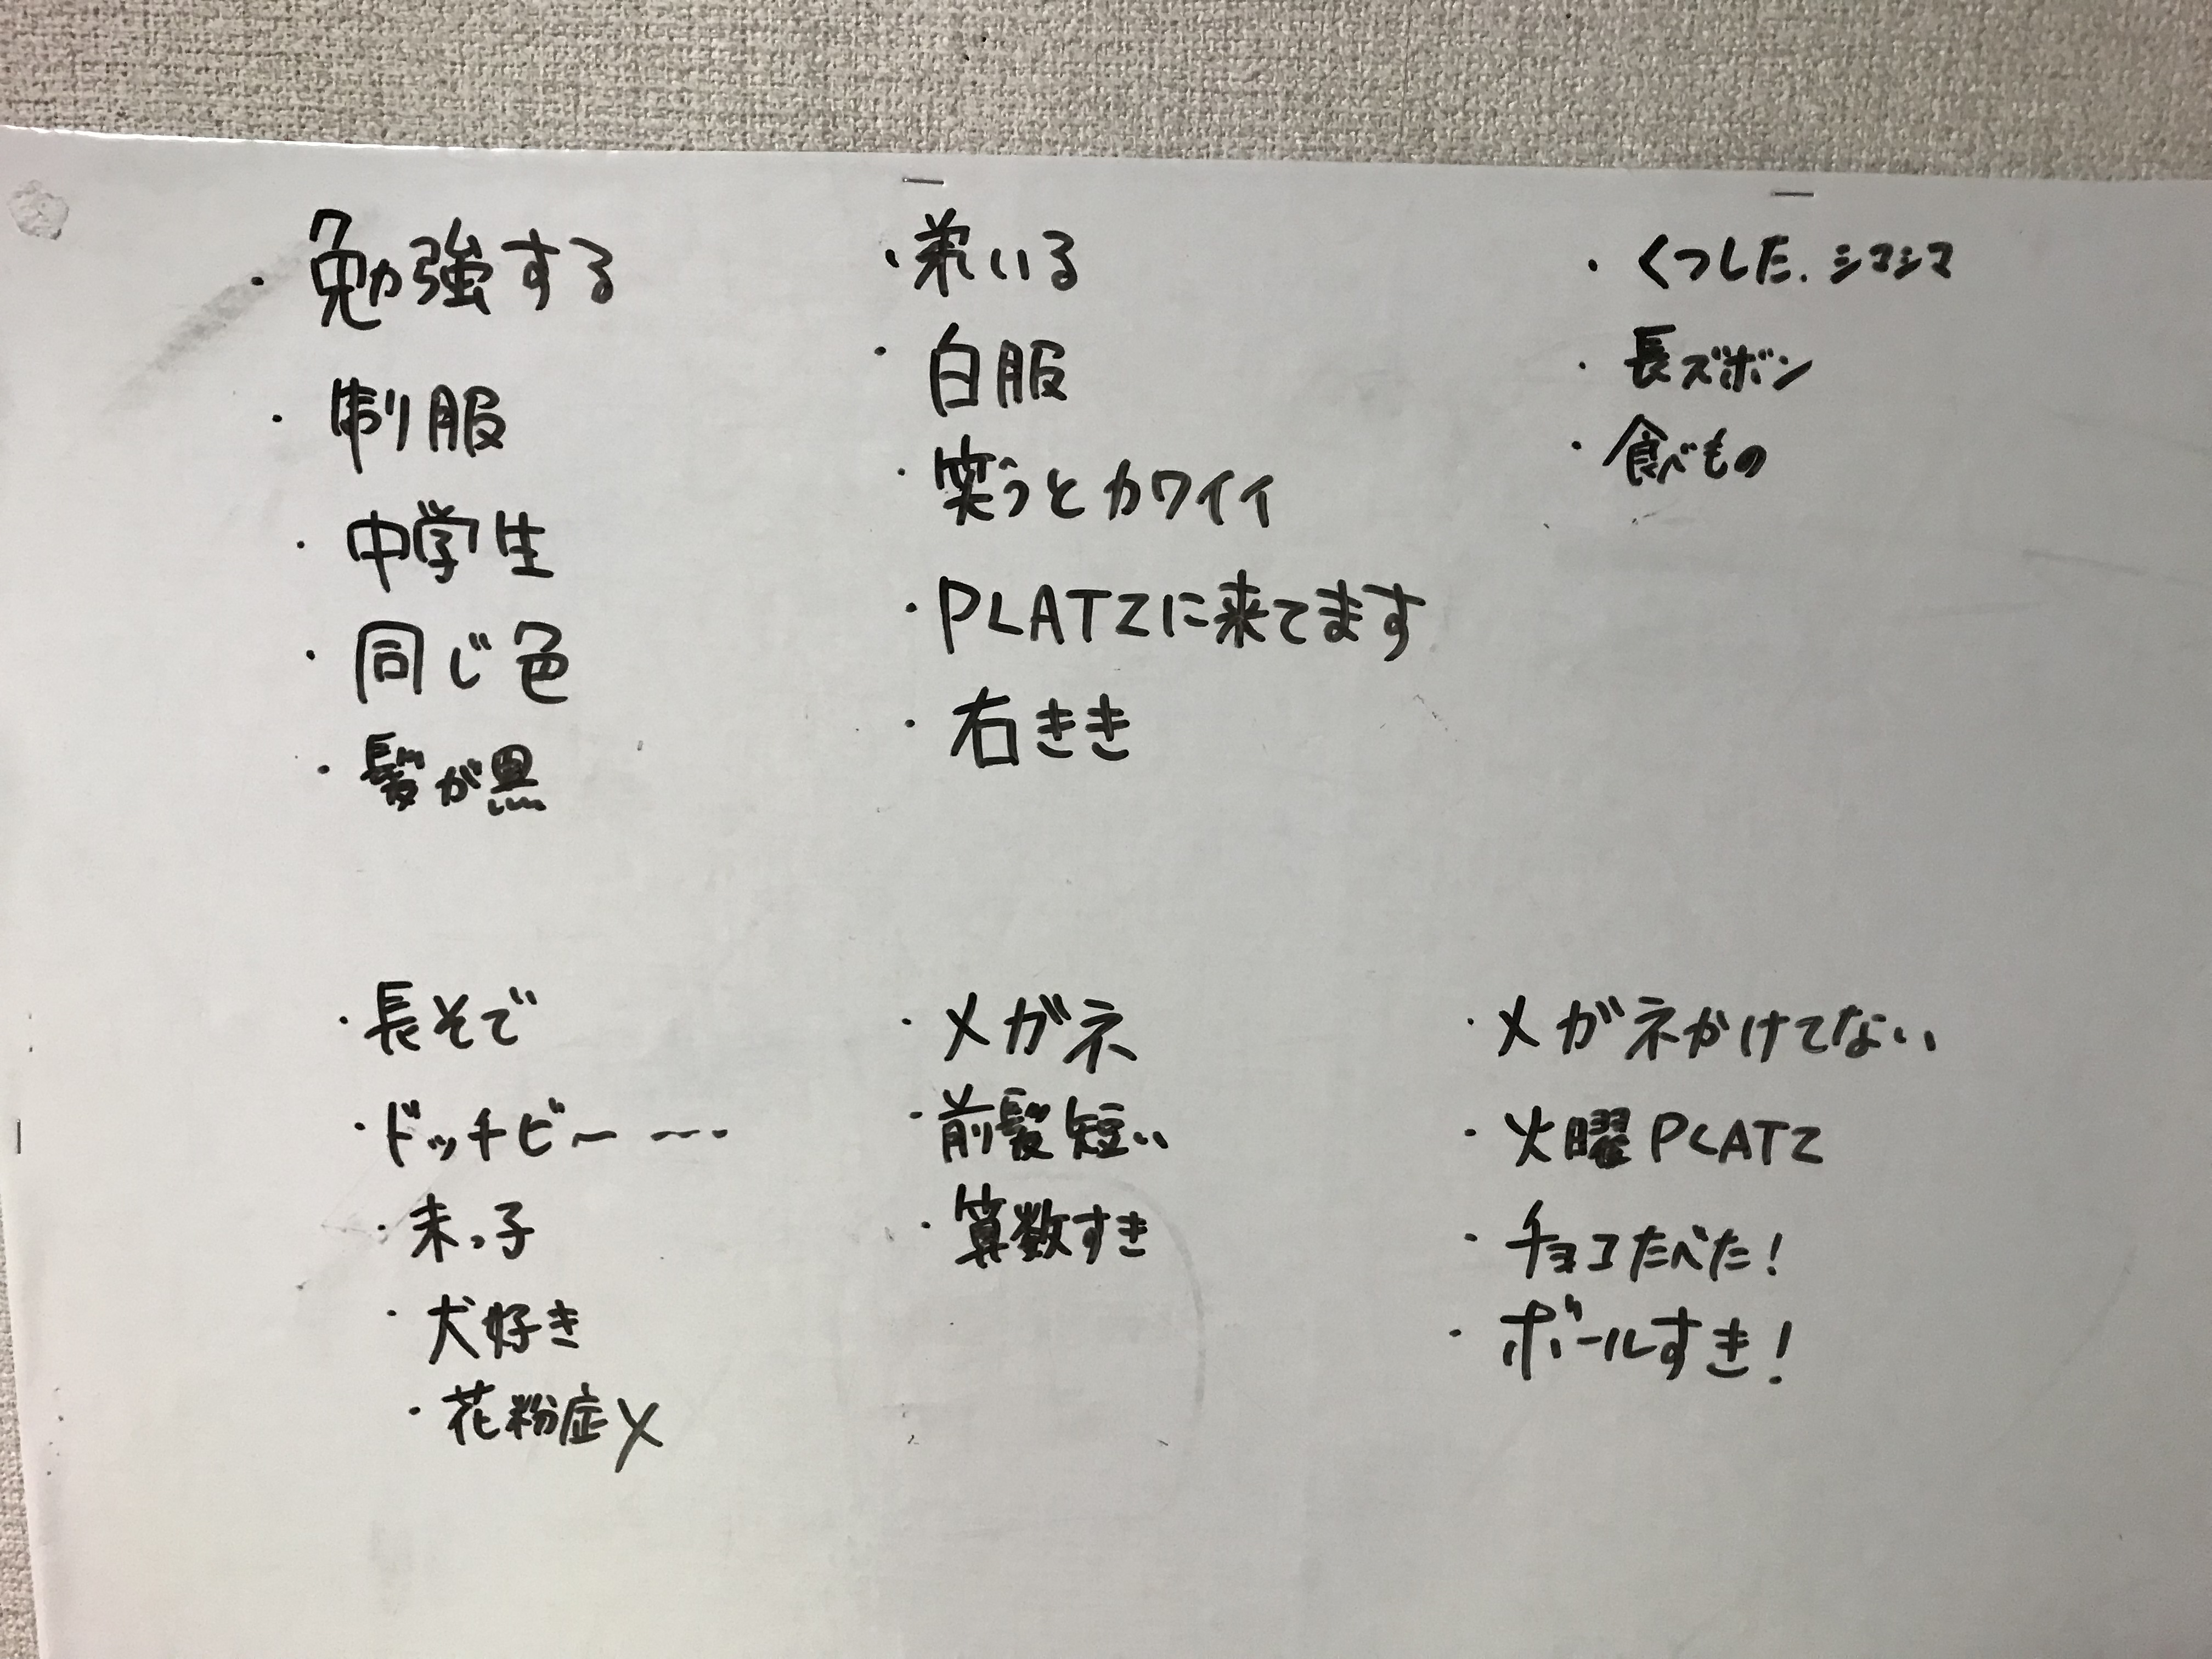 ・勉強する
・制服
・中学生
・同じ色
・髪が黒
・弟いる
・白服
・笑うとカワイイ
・PLATZに来てます
・右きき
・くつした.シマシマ
・長ズボン
・食べもの
・長そで
・ドッチビー ---
・末っ子
・犬好き
・花粉症X
・メガネ
・前髪短い
・算数すき
・メガネかけてない
・火曜PLATZ
・チョコたべた!
・ボールすき!